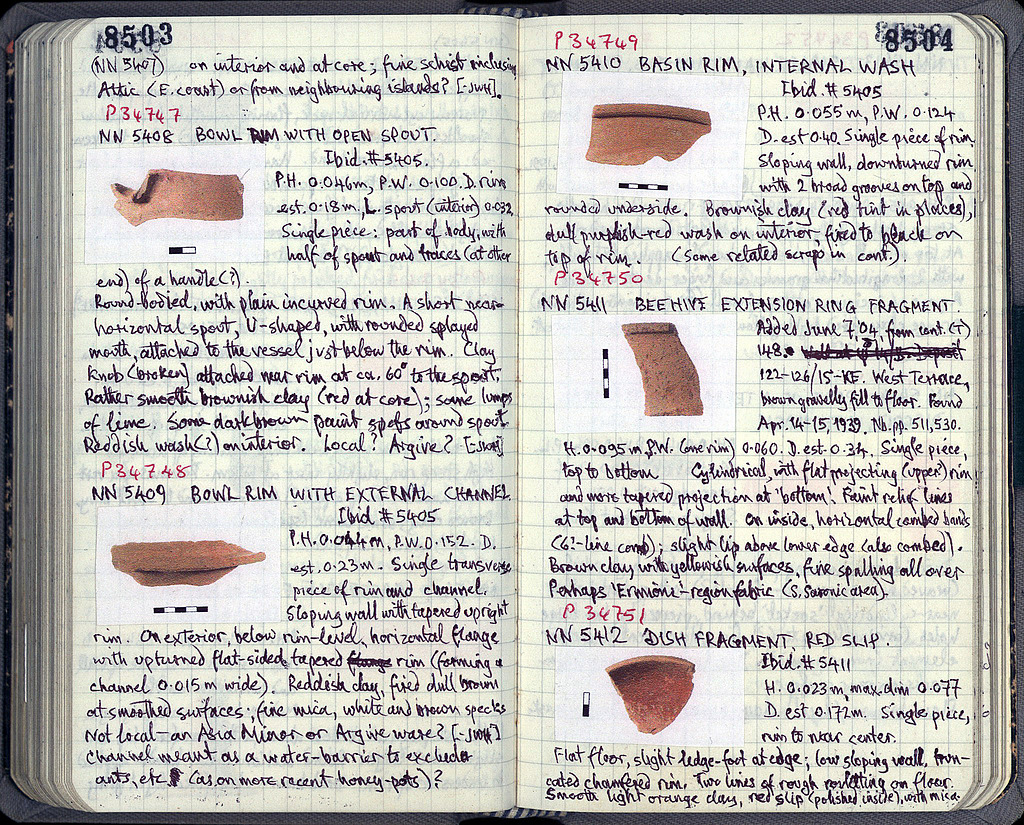 8503
(NN 5407) on interior and at core; fine schist inclusions
Attic (E. coast) or from neighbouring islands? [-JWH].
P 34747
NN 5408 BOWL RIM WITH OPEN SPOUT.
Ibid. #5405.
P.H. 0.046m, P.W. 0.100. D. rim
est. 0.18m, L. spout (interior) 0.032.
Single piece: part of body, with
half of spout and traces (at other
end) of a handle(?).
Round-bodied, with plain incurved rim. A short near-
horizontal spout, U-shaped, with rounded splayed
mouth, attached to the vessel just below the rim. Clay
knob (broken) attached near rim at ca. 60° to the spout.
Rather smooth brownish clay (red at core); some lumps
of lime. Some dark brown paint spots around spout
Reddish wash(?) on interior. Local? Argive? [-JWH]
P 34748
NN 5409 BOWL RIM WITH EXTERNAL CHANNEL
Ibid #5405
P.H. 0.044m, P.W. 0.152. D.
est. 0.23m. Single transverse
piece of rim and channel.
Sloping wall with tapered upright
rim. On exterior, below rim-level, horizontal flange
with upturned flat-sided, tapered flange rim (forming a
channel 0.015m wide). Reddish clay, fired dull brown
at smoothed surfaces; fine mica, white and brown specks
Not local - an Asia Minor or Argive ware? [-JWH]
Channel meant as a water-barrier to exclude
ants, etc (as on more recent honey-pots)?
8504
P 34749
NN 5410 BASIN RIM, INTERNAL WASH
Ibid. #5405
P.H. 0.055m, P.W. 0.124
D. est 0.40. Single piece of rim
Sloping wall, downturned rim
with 2 broad grooves on top and
rounded underside. Brownish clay (red tint in places),
dull purplish-red wash on interior, fired to black on
top of rim. (Some related scraps in cont.).
P 34750
NN 5411 BEEHIVE EXTENSION RING FRAGMENT.
Added June 7,'04, from cont. (T)
148.
122-126/15-KE. West Terrace,
brown gravelly fill to floor. Found
Apr. 14-15, 1939. Nb. pp. 511, 530.
H. 0.095m, P.W. (one rim) 0.060. D. est. 0.34. Single piece,
top to bottom. Cylindrical, with flat projecting (upper) rim
and more tapered projection at 'bottom'. Faint relief lines
at top and bottom of wall. On inside, horizontal combed bands
(6?-line comb); slight lip above lower edge (also combed).
Brown clay, with yellowish surfaces, fine spalling all over
Perhaps 'Ermioni'-region fabric (S. Saronic area).
P 34751
NN 5412 DISH FRAGMENT, RED SLIP.
Ibid. #5411
H. 0.023m, max. dim 0.077
D. est 0.172m. Single piece,
rim to near center.
Flat floor, slight ledge-foot at edge; low sloping wall, trun-
cated chamfered rim. Two lines of rough rouletting on floor.
Smooth light orange clay, red slip (polished inside), with mica.